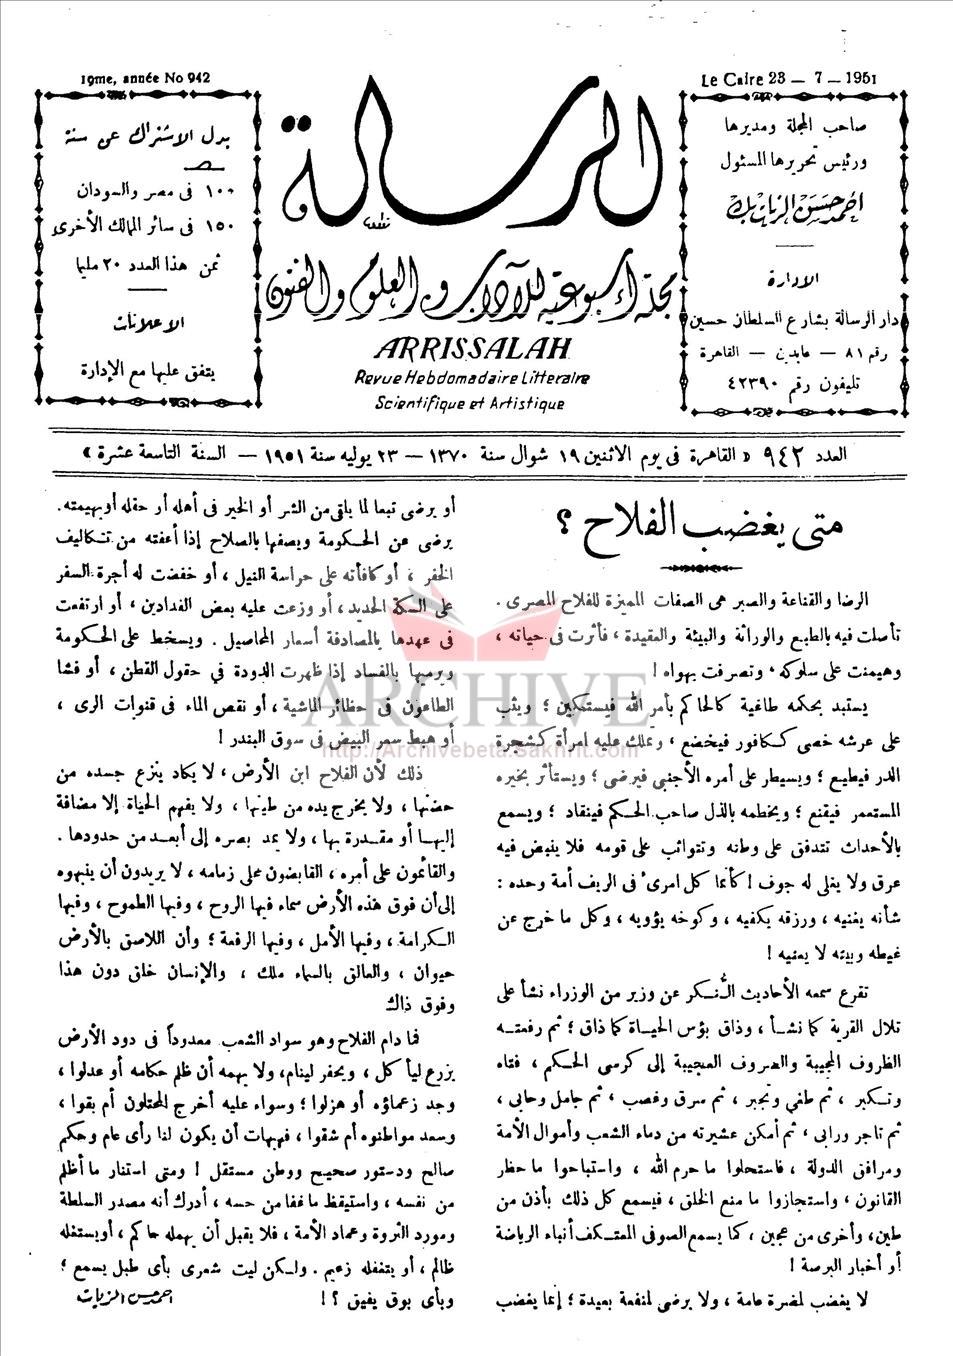 19me, année No 942
Le Caire 23 – 7 – 1951
بدل الاشتراك عن سنة
١٠٠ فى مصر والسودان
١٥٠ فى سائر الممالك الأخرى
ثمن هذا العدد ٢٠ مليما
الاعلانات
يتفق عليها مع الإدارة
الرسالة
مجلة أسبوعية للآداب والعلوم والفنون
ARRISSALAH
Revue Hebdomadaire Litteraire
Scientifique et Artistique
صاحب المجلة ومديرها
ورئيس تحريرها المسئول
احمد حسن الزيات بك
الادارة
دار الرسالة بشارع السلطان حسين
رقم ٨١ — عابدين — القاهرة
تليفون رقم ٤٢٣٩٠
العدد ٩٤٢ « القاهرة فى يوم الاثنين ١٩ شوال سنة ١٣٧٠ — ٢٣ يوليه سنة ١٩٥١ — السنة التاسعة عشرة »
متى يغضب الفلاح ؟
الرضا والقناعة والصبر هى الصفات المميزة للفلاح المصرى .
تأصلت فيه بالطبع والوراثة والبيئة والعقيدة ، فأثرت فى حياته ،
وهيمنت على سلوكه ، وتصرفت بهواه !
يستبد بحكمه طاغية كالحاكم بأمر الله فيستكين ؛ ويثب
على عرشه خصى ككافور فيخضع ، وتملك عليه امرأة كشجرة
الدر فيطيع ؛ ويسيطر على أمره الأجنبى فيرضى ؛ ويستأثر بخيره
المستعمر فيقنع ؛ ويخطمه بالذل صاحب الحكم فينقاد ؛ ويسمع
بالأحداث تتدفق على وطنه وتتواثب على قومه فلا ينبض فيه
عرق ولا يغلى له جوف ! كأنما كل امرئ فى الريف أمة وحده :
شأنه يغنيه ، ورزقه يكفيه ، وكوخه يؤويه ، وكل ما خرج عن
غيطه وبيته لا يعنيه !
تقرع سمعه الأحاديث النُّكر عن وزير من الوزراء نشأ على
تلال القرية كما نشأ ، وذاق بؤس الحياة كما ذاق ؛ ثم رفعته
الظروف العجيبة والصروف العجيبة إلى كرسى الحكم ، فتاه
وتكبر ، ثم طغى وتجبر ، ثم سرق وغصب ، ثم جامل وحابى ،
ثم تاجر ورابى ، ثم أمكن عشيرته من دماء الشعب وأموال الأمة
ومرافق الدولة ، فاستحلوا ما حرم الله ، واستباحوا ما حظر
القانون ، واستجازوا ما منع الخلق ، فيسمع كل ذلك بأذن من
طين، وأخرى من عجين ، كما يسمع الصوفى المعتكف أنباء الرياضة
أو أخبار البرصة !
لا يغضب لمضرة عامة ، ولا يرضى لمنفعة بعيدة ؛ إنما يغضب
أو يرضى تبعا لما يلقى من الشر أو الخير فى أهله أو حقله أو بهيمته.
يرضى عن الحكومة ويصفها بالصلاح إذا أعفته من تكاليف
الخفر ، أو كافأته على حراسة النيل ، أو خفضت له أجرة السفر
على السكة الحديد ، أو وزعت عليه بعض الفدادين ، أو ارتفعت
فى عهدها بالمصادفة أسعار المحاصيل . ويسخط على الحكومة
ويرميها بالفساد إذا ظهرت الدودة فى حقول القطن ، أو فشا
الطاعون فى حظائر الماشية ، أو نقص الماء فى قنوات الرى ،
أو هبط سعر البيض فى سوق البندر !
ذلك لأن الفلاح ابن الأرض ، لا يكاد ينزع جسده من
حضنها ، ولا يخرج يده من طينها ، ولا يفهم الحياة إلا مضافة
إليها أو مقدرة بها ، ولا يمد بصره إلى أبعد من حدودها .
والقائمون على أمره ، القابضون على زمامه ، لا يريدون أن ينبهوه
إلى أن فوق هذه الأرض سماء فيها الروح ، وفيها الطموح ، وفيها
الكرامة ، وفيها الأمل ، وفيها الرفعة ؛ وأن اللاصق بالأرض
حيوان ، والعالق بالسماء ملك ، والإنسان خلق دون هذا
وفوق ذاك
فما دام الفلاح وهو سواد الشعب معدوداً فى دود الأرض
يزرع ليأكل ، ويحفر لينام، ولا يهمه أن ظلم حكامه أو عدلوا ،
وجد زعماؤه أو هزلوا ؛ وسواء عليه أخرج المحتلون أم بقوا ،
وسعد مواطنوه أم شقوا ، فهيهات أن يكون لنا رأى عام وحكم
صالح ودستور صحيح ووطن مستقل ! ومتى استنار ما أظلم
من نفسه ، واستيقظ ما غفا من حسه ، أدرك أنه مصدر السلطة
ومورد الثروة وعماد الأمة ، فلا يقبل أن يهمله حاكم ، أو يستغله
ظالم ، أو يتغفله زعيم . ولكن ليت شعرى بأى طبل يسمع ؛
وبأى بوق يفيق ؟ !
احمد حسن الزيات
ARCHIVE
http://Archivebeta.Sakhrit.com